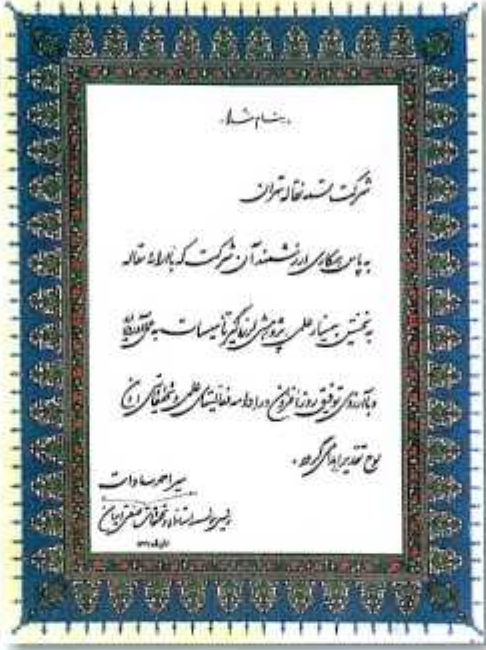 بنام خدا
شرکت تهران
به پاس همکاری ارزشمند آن شرکت که با ارائه مقاله
به نخستین سمینار علمی پژوهشی تاسیسات به عمل آورده‌اند
و با آرزوی توفیق روزافزون در ادامه فعالیتهای علمی و تحقیقاتی این
لوح تقدیر اهدا می‌گردد.
میر احمد سادات
رئیس موسسه استاندارد و تحقیقات صنعتی ایران